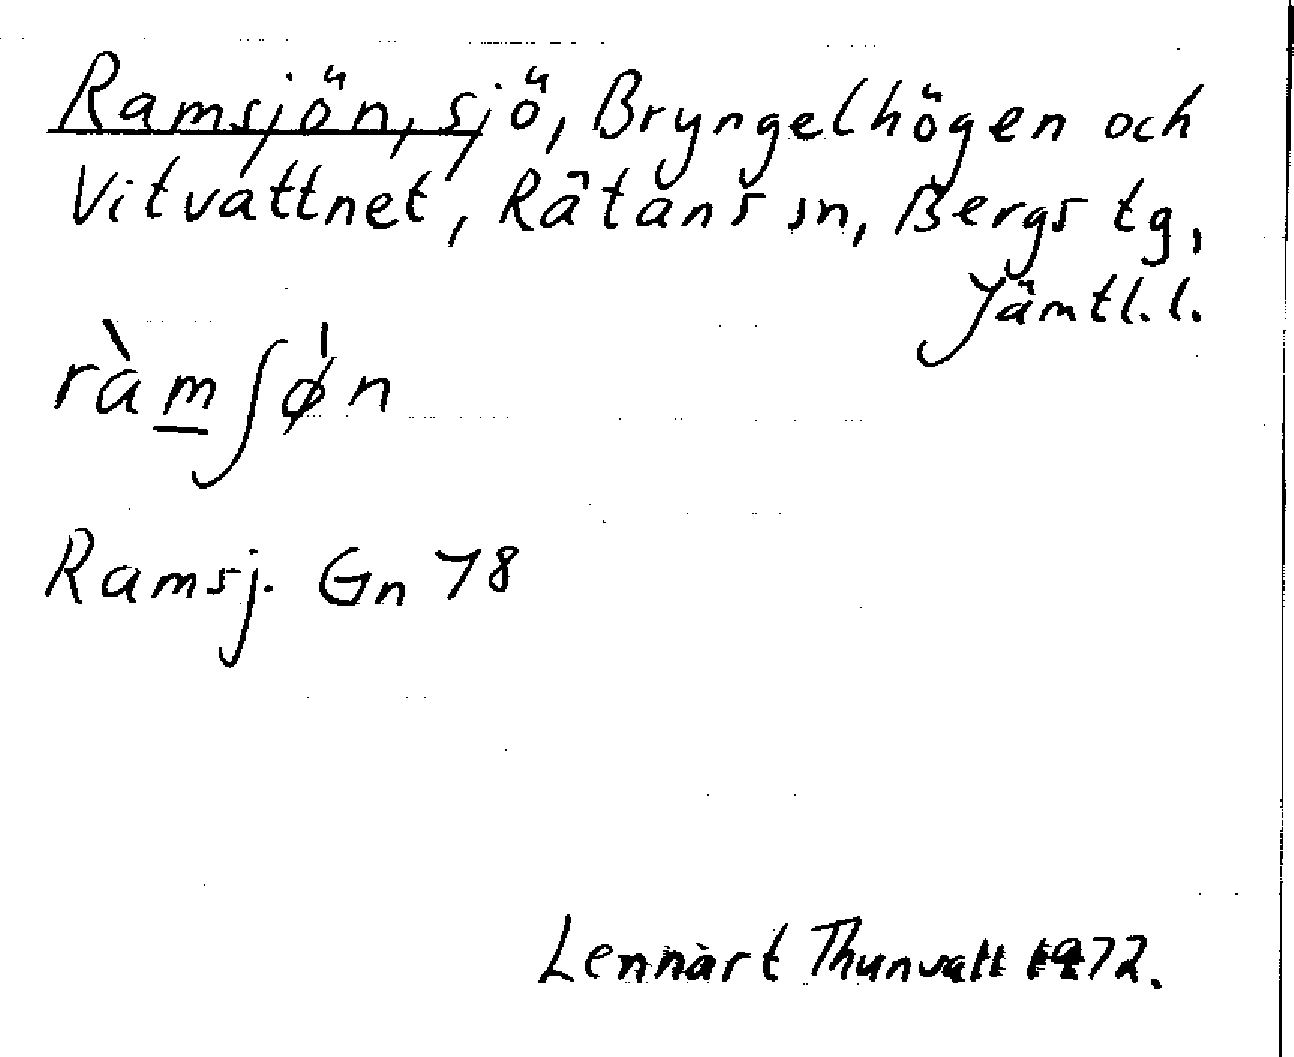 Ramsjön, sjö, Bryngelhögen och
Vitvattnet, Rätans sn, Bergs tg,
Jämtl.l.
ràmʃǿn
Ramsj. Gn 78
Lennart Thunvall 1972.